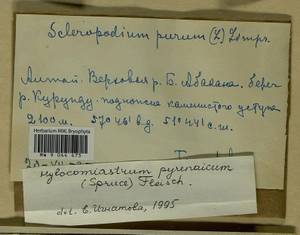 Scleropodium purum (L) Limpr.
Алтай. Верховья р. Б. Абакана. Берег
р. Курунду. подножия каменистого уступа
2100 м. 51°41' с.ш.
Herbarium MW, Bryophyta
MW 9 044 473
Hylocomiastrum pyrenaicum
(Spruce) Fleisch.
det. Е. Игнатова, 1995